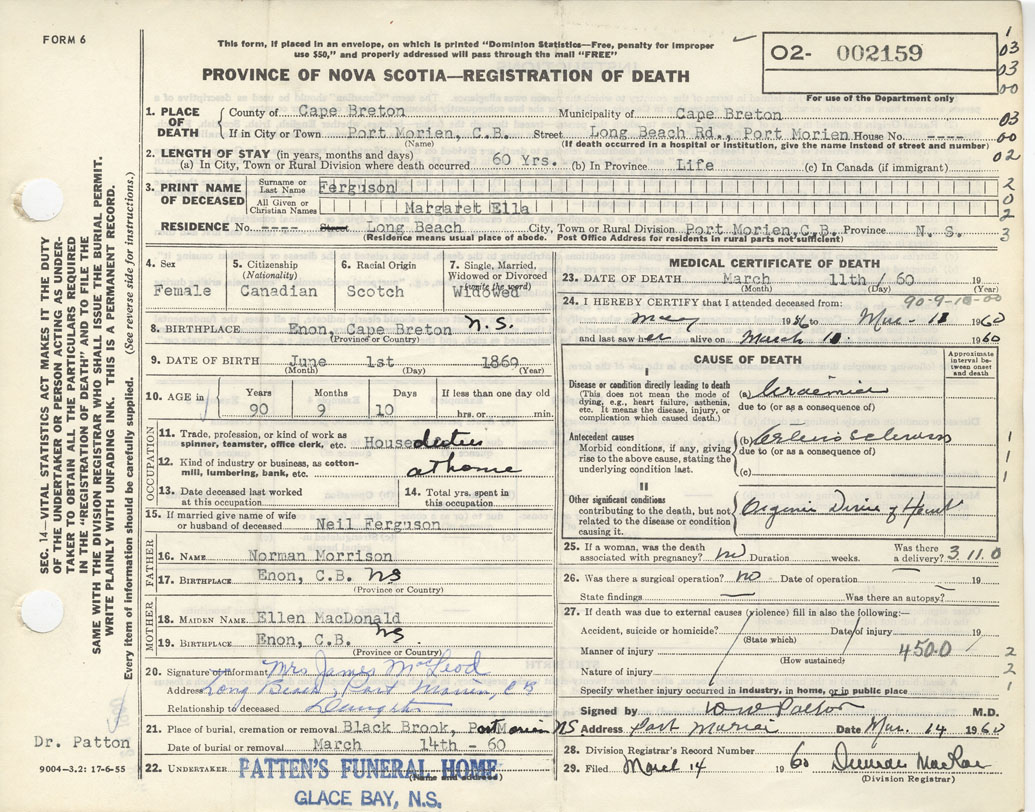 FORM 6
This form, if placed in an envelope, on which is printed "Dominion Statistics—Free, penalty for improper
use $50," and properly addressed will pass through the mail "FREE"
PROVINCE OF NOVA SCOTIA—REGISTRATION OF DEATH
02- 002159
For use of the Department only
1
03
03
00
03
00
02
2
0
2
3
1. PLACE OF DEATH
County of Cape Breton Municipality of Cape Breton
If in City or Town Port Morien, C.B. Street Long Beach Rd., Port Morien House No. ----
(Name) (If death occurred in a hospital or institution, give the name instead of street and number)
2. LENGTH OF STAY (in years, months and days)
(a) In City, Town or Rural Division where death occurred 60 Yrs. (b) In Province Life (c) In Canada (if immigrant)
3. PRINT NAME OF DECEASED
Surname or Last Name Ferguson
All Given or Christian Names Margaret Ella
RESIDENCE No. ---- Street Long Beach City, Town or Rural Division Port Morien, C.B. Province N. S.
(Residence means usual place of abode. Post Office Address for residents in rural parts not sufficient)
4. Sex
Female
5. Citizenship
(Nationality)
Canadian
6. Racial Origin
Scotch
7. Single, Married,
Widowed or Divorced
(write the word)
Widowed
8. BIRTHPLACE Enon, Cape Breton N.S.
(Province or Country)
9. DATE OF BIRTH June 1st 1869
(Month) (Day) (Year)
10. AGE in
Years Months Days If less than one day old
90 9 10 hrs. or min.
OCCUPATION
11. Trade, profession, or kind of work as
spinner, teamster, office clerk, etc. House duties
12. Kind of industry or business, as cotton-
mill, lumbering, bank, etc. at home
13. Date deceased last worked
at this occupation
14. Total yrs. spent in
this occupation
15. If married give name of wife
or husband of deceased Neil Ferguson
FATHER
16. NAME Norman Morrison
17. BIRTHPLACE Enon, C.B. NS
(Province or Country)
MOTHER
18. MAIDEN NAME Ellen MacDonald
19. BIRTHPLACE Enon, C.B. NS
(Province or Country)
20. Signature of informant Mrs James McLeod
Address Long Beach, Port Morien, C B
Relationship to deceased Daughter
21. Place of burial, cremation or removal Black Brook, Port Morien NS
Date of burial or removal March 14th - 60
22. UNDERTAKER PATTEN'S FUNERAL HOME
(Name and address)
GLACE BAY, N.S.
MEDICAL CERTIFICATE OF DEATH
23. DATE OF DEATH March 11th / 60 19
(Month) (Day) (Year)
24. I HEREBY CERTIFY that I attended deceased from: 90-9-10-00
May 1956 to Mar. 1960
and last saw her alive on March 1960
CAUSE OF DEATH
Approximate
interval be-
tween onset
and death
I
Disease or condition directly leading to death
(This does not mean the mode of
dying, e.g., heart failure, asthenia,
etc. It means the disease, injury, or
complication which caused death.)
(a) Uraemia
due to (or as a consequence of)
Antecedent causes
Morbid conditions, if any, giving
rise to the above cause, stating the
underlying condition last.
(b) Arteriosclerosis
due to (or as a consequence of)
(c)
1
1
1
II
Other significant conditions
contributing to the death, but not
related to the disease or condition
causing it.
Organic Disease of Heart
25. If a woman, was the death
associated with pregnancy? no Duration weeks. Was there
a delivery? 3.11.0
26. Was there a surgical operation? no Date of operation 19
State findings Was there an autopsy?
27. If death was due to external causes (violence) fill in also the following:—
Accident, suicide or homicide? Date of injury 19
(State which)
Manner of injury 4500
(How sustained)
Nature of injury
2
2
1
Specify whether injury occurred in industry, in home, or in public place
Signed by M.D.
Address Port Morien Date Mar. 14 1960
28. Division Registrar's Record Number
29. Filed March 14 1960 Duncan MacRae
(Division Registrar)
SEC. 14—VITAL STATISTICS ACT MAKES IT THE DUTY
OF THE UNDERTAKER OR PERSON ACTING AS UNDER-
TAKER TO OBTAIN ALL THE PARTICULARS REQUIRED
IN THE "REGISTRATION OF DEATH" AND TO FILE THE
SAME WITH THE DIVISION REGISTRAR WHO SHALL ISSUE THE BURIAL PERMIT.
WRITE PLAINLY WITH UNFADING INK. THIS IS A PERMANENT RECORD.
Every item of information should be carefully supplied. (See reverse side for instructions.)
Dr. Patton
9004-3.2: 17-6-55